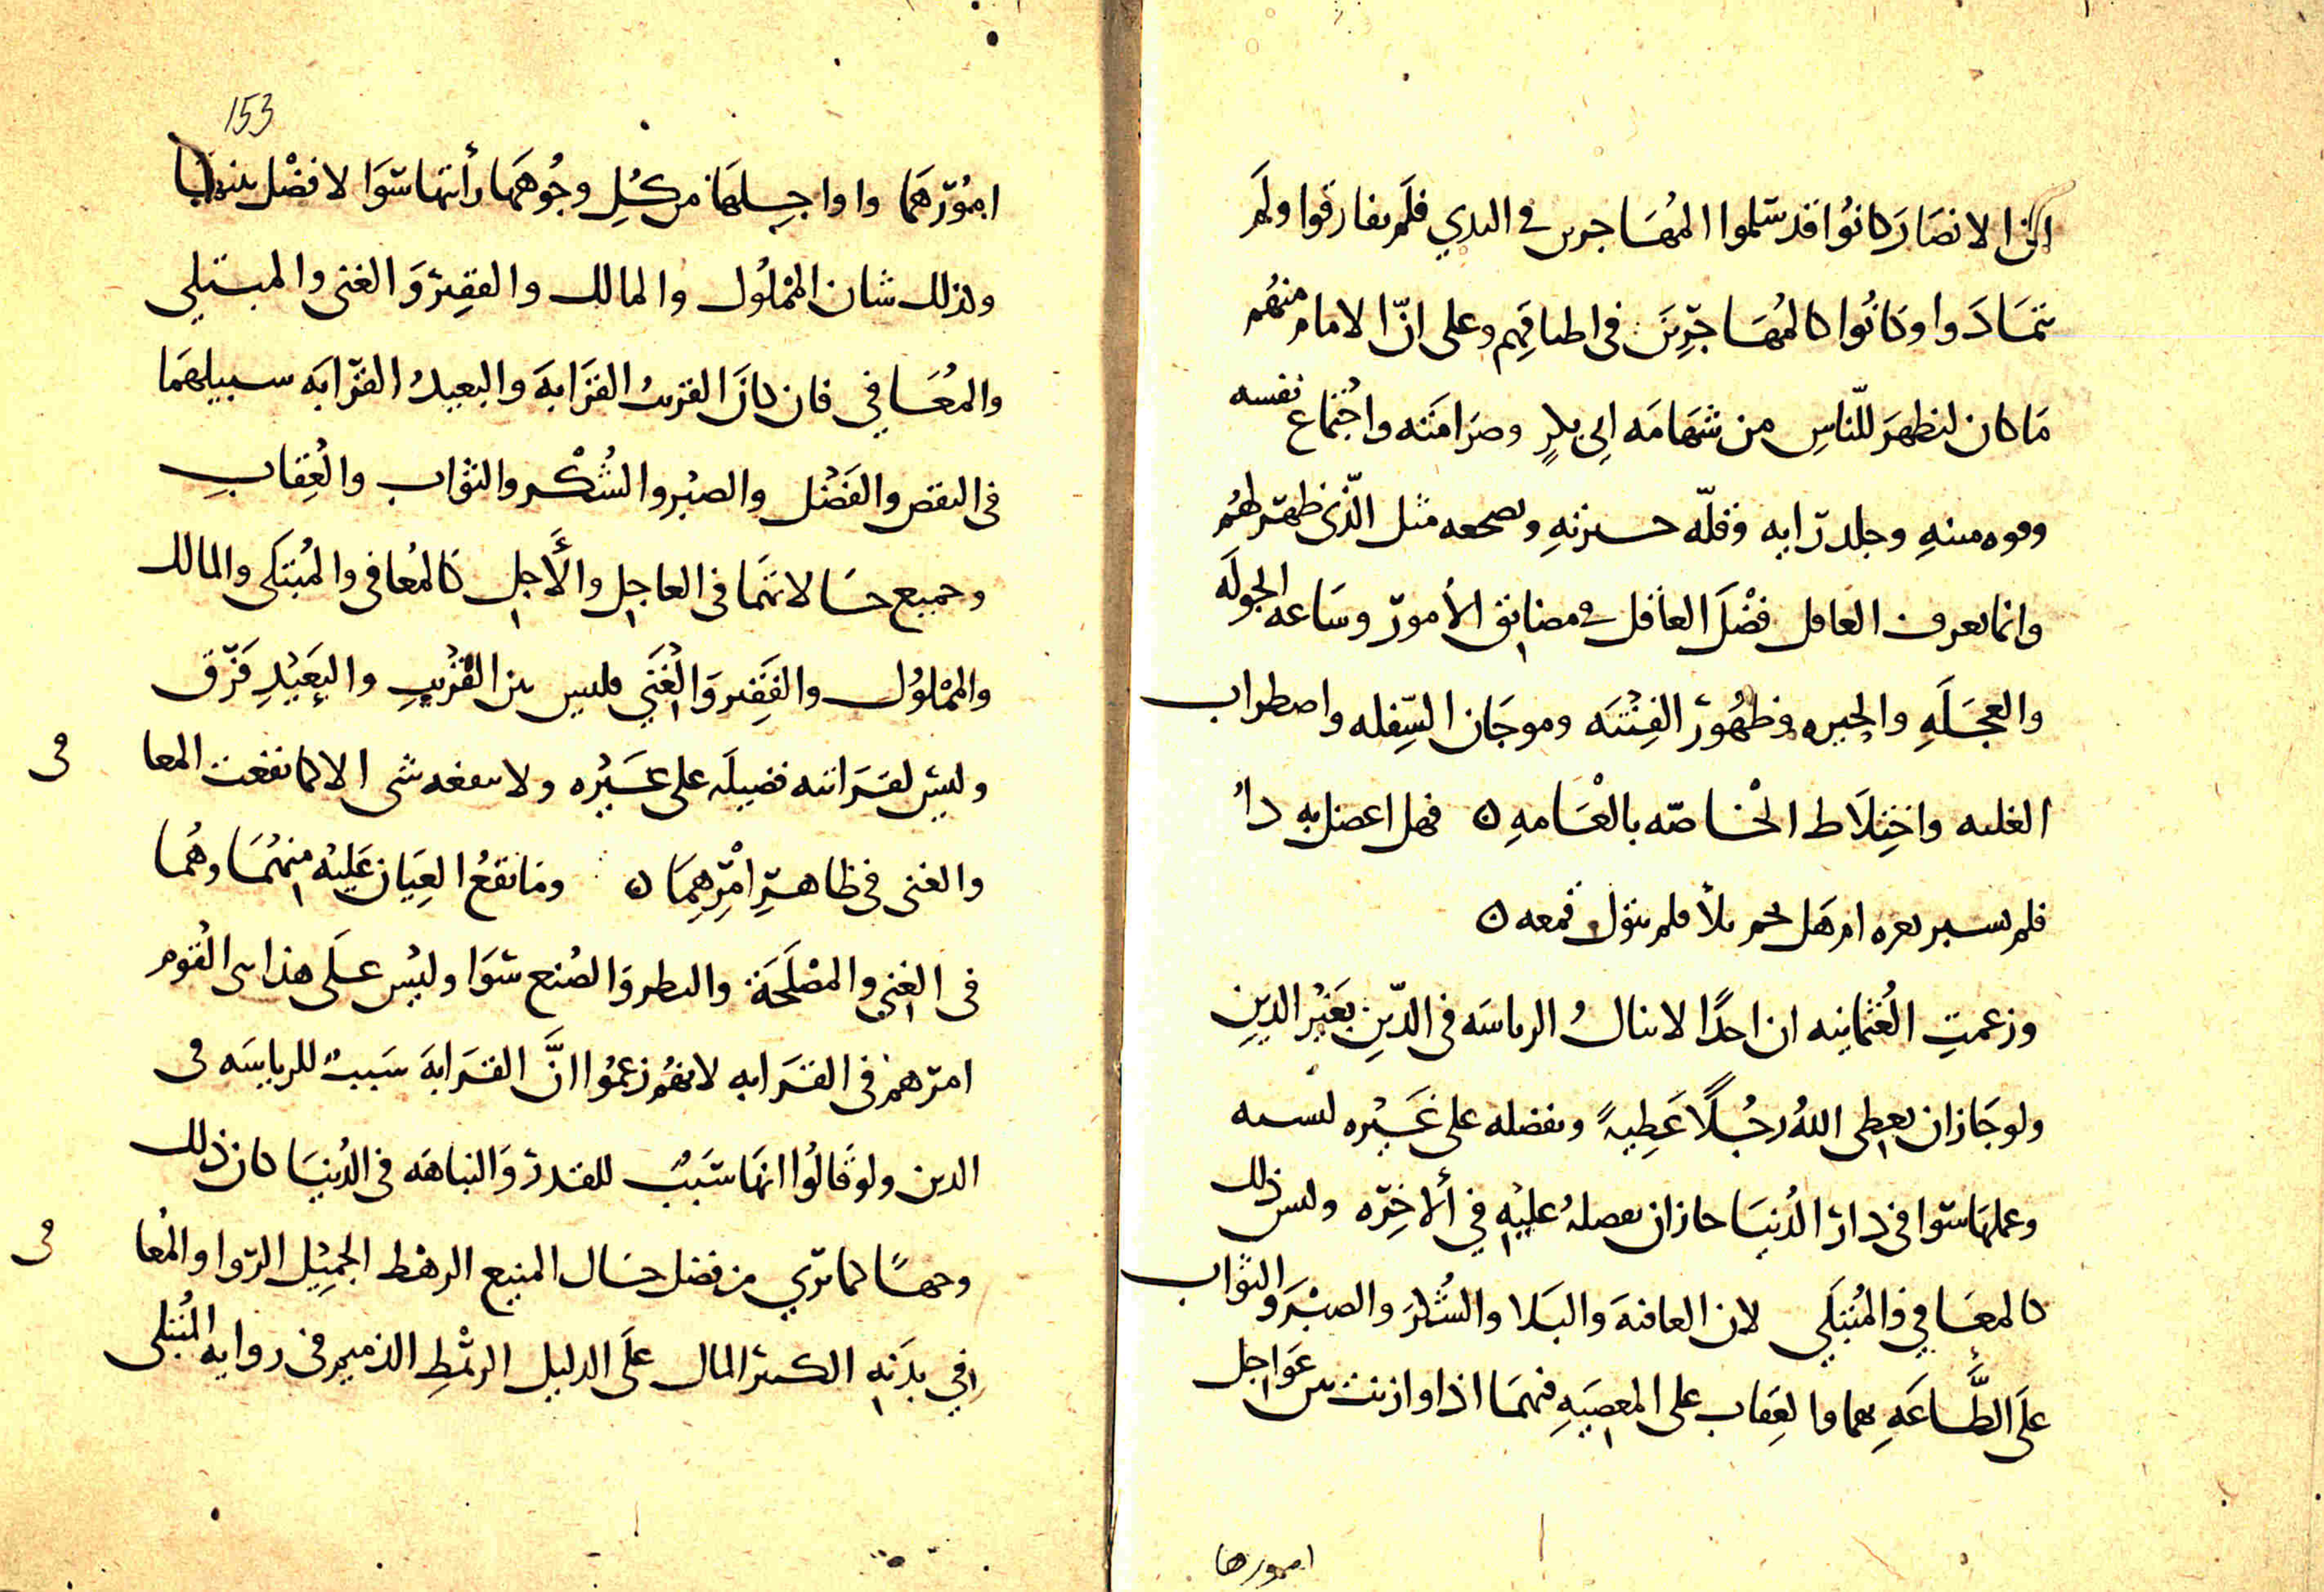 ان الانصار كانوا قد سلموا المهاجرين في البدي فلم يفارقوا ولم
يتمادوا وكانوا كالمهاجرين في اطباقهم وعلى انّ الامام منهم
ما كان ليظهر للناس من شهامه ابي بكر وصرامته واجتماع نفسه
وقوه منته وجلد رايه وقلّه حيرته وتصحعه مثل الّذي ظهر لهم
وانما يعرف العاقل فضل العاقل في مضايق الأمور وساعه الجوله
والعجله والحيره وظهور الفتنه وموجان السّفله واضطراب
العليه واختلاط الخاصّه بالعامه ه فهل اعضل به داءُ
فلم يسبر بعره ام هل نجم بلأ فلم يتول قمعه ه
وزعمت العثمانيه ان احدًا لا ينالُ الرياسه في الدّين بغير الدين
ولو جاز ان يعطي اللهُ رجلًا عطيهً ويفضله على غيره لنسبه
وعملهما سوا في دار الدُنيا جاز ان يفضلهُ عليه في ألاخره وليس ذلك
كالمعافي والمُبتلَي لان العافيه والبلا والشُكر والصبر والثواب
على الطَّاعَهِ بهما والعِقاب على المعصيهِ فيهما اذا وازنت بين عواجل
امورها
153
امورهما واواجلهما من كل وجوههما رأيتها سوا لا فضل بينهما
وكذلك شان المملوك والمالك والفقير والغني والمبتلى
والمُعافي فان كان القريبُ القرابه والبعيدُ القرابه سبيلهما
في النقص والفضل والصبر والشُكْر والثواب والعِقابِ
وجميع حالاتهما في العاجل والأجل كالمُعافي والمُبتلى والمالك
والمملوك والفقير والغني فليس بين القريب والبعيد فرق
وليس لقرابته فضيله على غيره ولا ينفعه شى الا كما نفعت المعافى
والغنى في ظاهر امرهما ه وما تقعُ العِيان عَليه منهما وهُما
في الغني والمصلحة والنظر والصُنع سوا وليس على هذا بني القوم
امرهم في القرابه لانهم زعموا انَّ القرابهَ سببٌ للرياسه فى
الدين ولو قالُوا انها سببٌ للقدر والنباهه في الدُنيا كان ذلك
وجهًا كما تري من فضل حال المنيع الرهط الجميل الروا والمُعافى
في بدنه الكثير المال على الذليل الرهْطِ الذميم في روايه المُبتلى